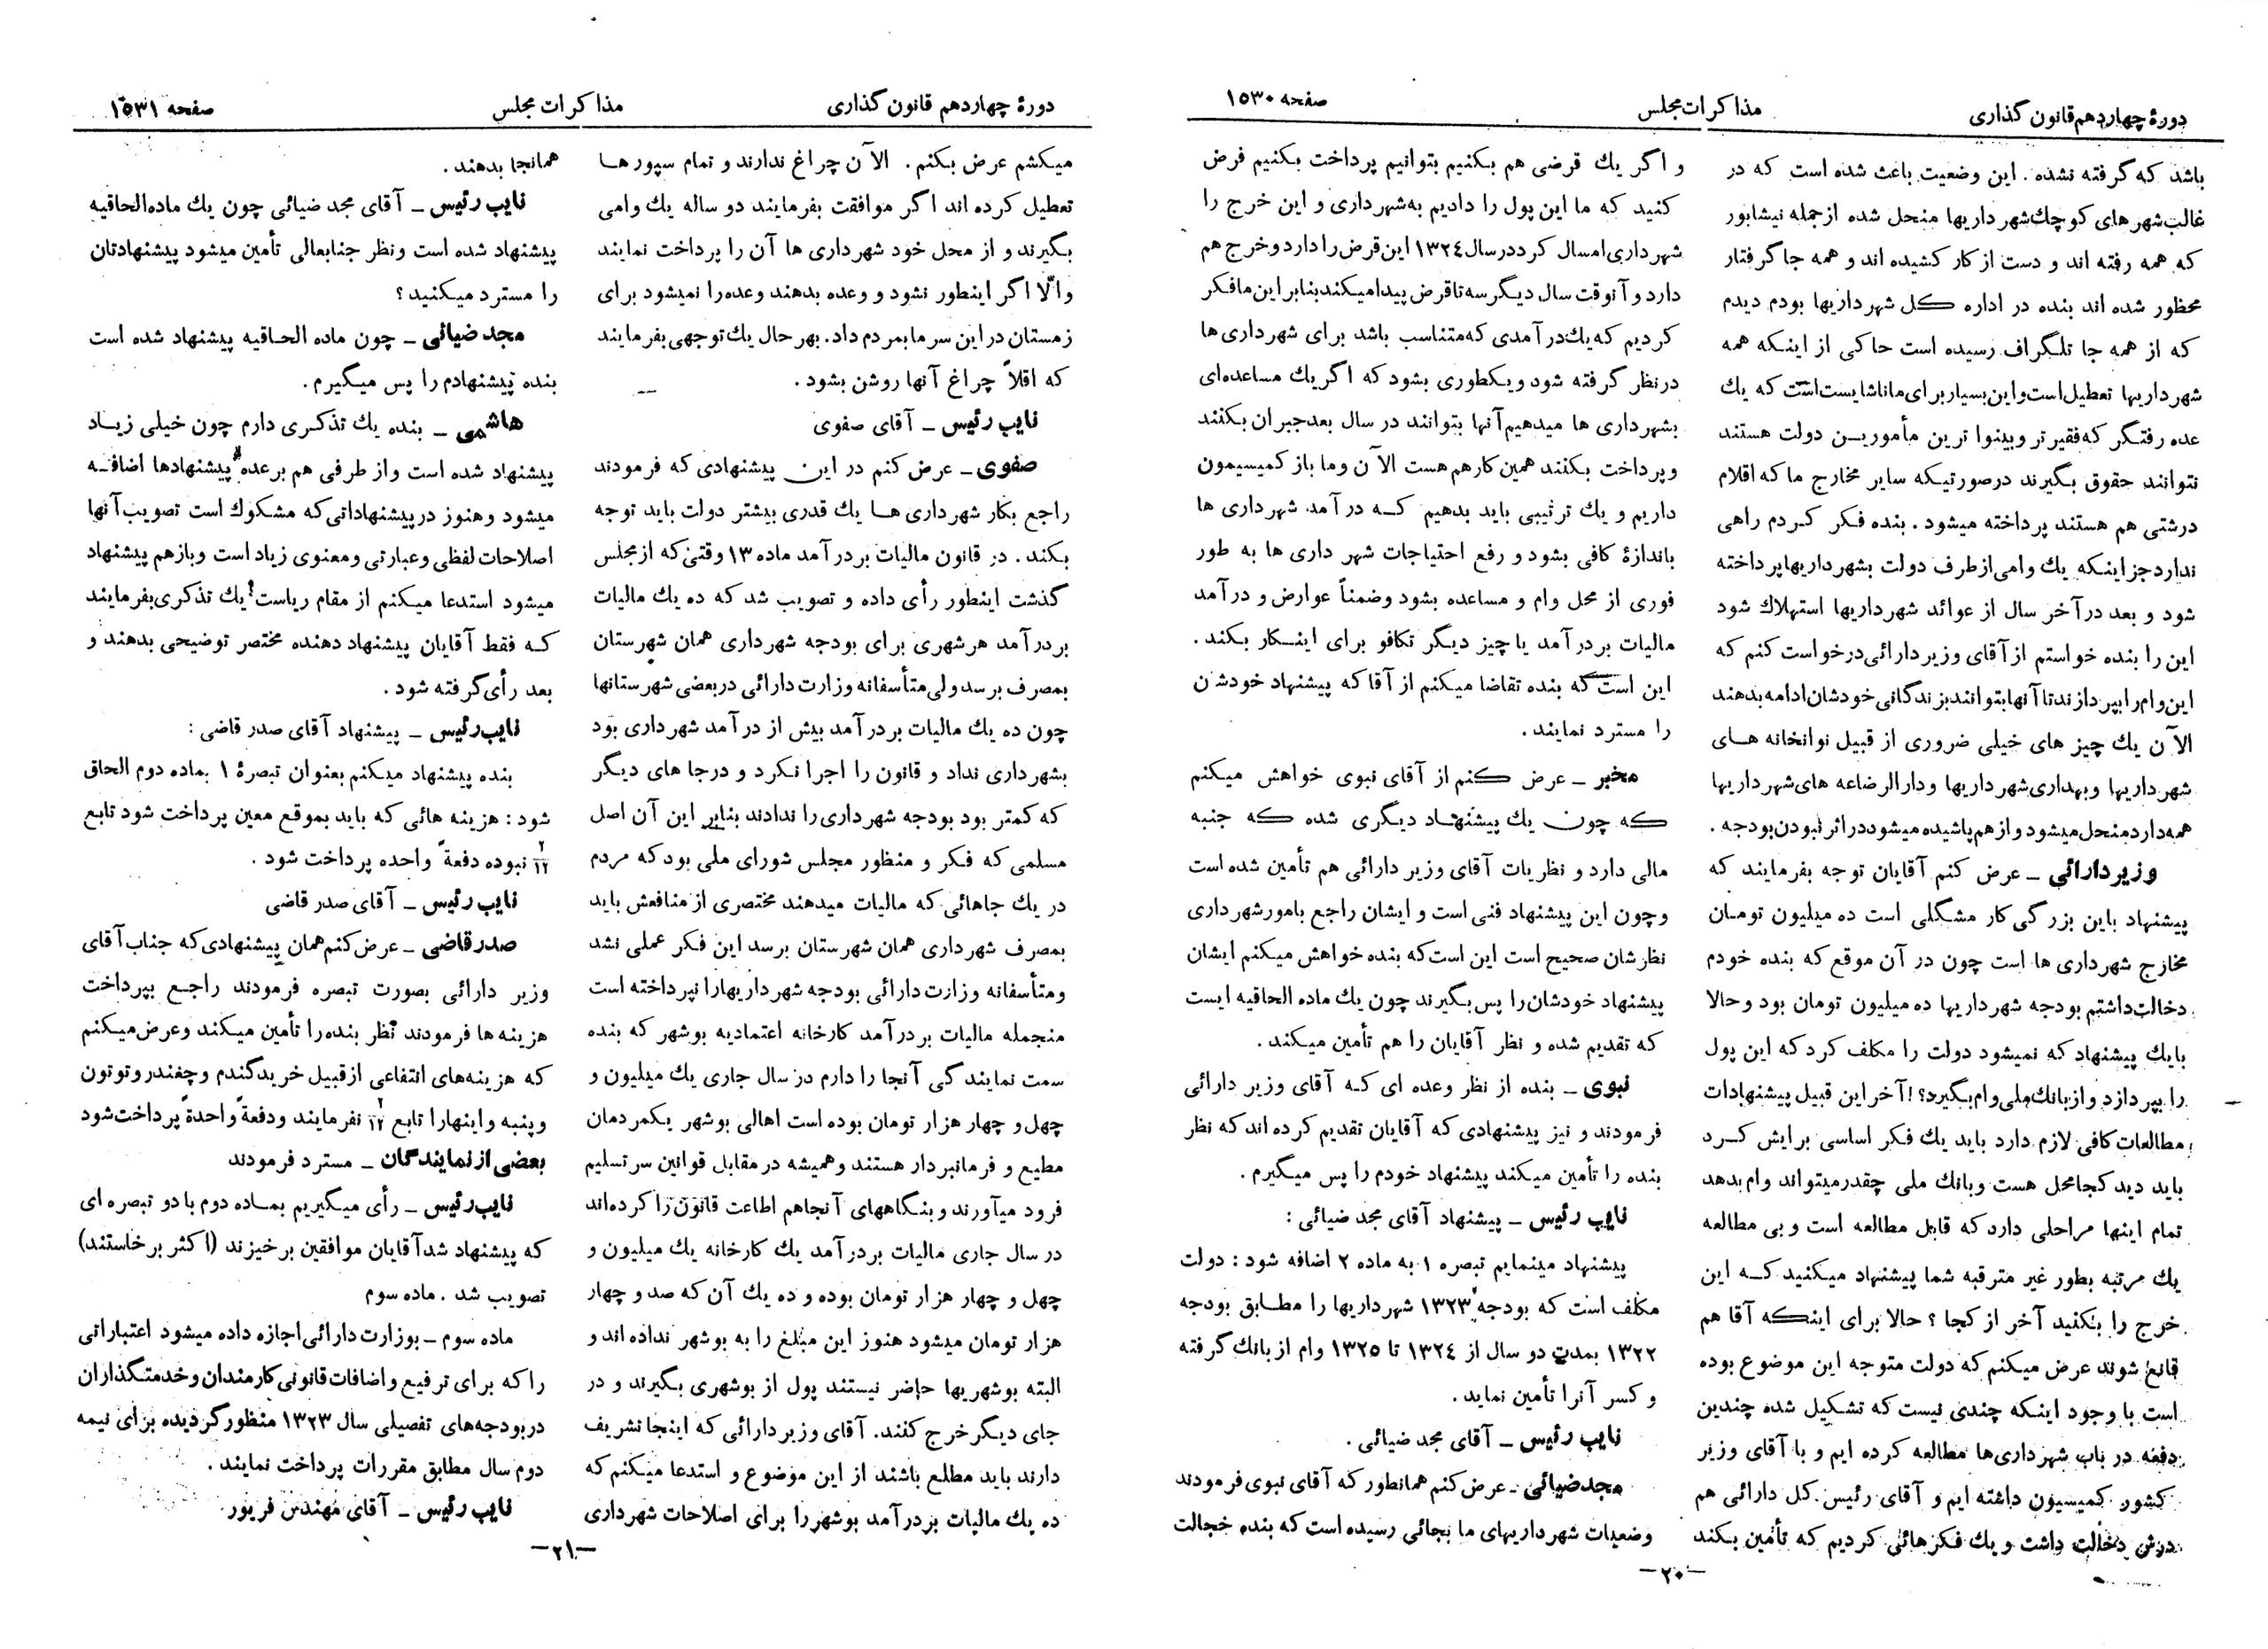 دورهٔ چهاردهم قانون گذاری
مذاکرات مجلس
صفحه ۱۵۳۰
باشد که گرفته نشده . این وضعیت باعث شده است که در
غالب شهر های کوچك شهرداریها منحل شده از جمله نیشابور
که همه رفته اند و دست از کار کشیده اند و همه جا گرفتار
محظور شده اند بنده در اداره کل شهرداریها بودم دیدم
که از همه جا تلگراف رسیده است حاکی از اینکه همه
شهرداریها تعطیل است و این بسیار برای ما ناشایست است که یك
عده رفتگر که فقیر تر و بینوا ترین مأمورین دولت هستند
نتوانند حقوق بگیرند در صورتیکه سایر مخارج ما که اقلام
درشتی هم هستند پرداخته میشود . بنده فکر کردم راهی
ندارد جز اینکه یك وامی از طرف دولت بشهرداریها پرداخته
شود و بعد در آخر سال از عوائد شهرداریها استهلاك شود
این را بنده خواستم از آقای وزیر دارائی درخواست کنم که
این وام را بپردازند تا آنها بتوانند بزندگانی خودشان ادامه بدهند
الآن یك چیز های خیلی ضروری از قبیل نوانخانه های
شهرداریها و بهداری شهرداریها و دارالرضاعه های شهرداریها
همه دارد منحل میشود و از هم پاشیده میشود در اثر نبودن بودجه .
وزیر دارائی ـ عرض کنم آقایان توجه بفرمایند که
پیشنهاد باین بزرگی کار مشگلی است ده میلیون تومان
مخارج شهرداری ها است چون در آن موقع که بنده خودم
دخالت داشتم بودجه شهرداریها ده میلیون تومان بود و حالا
بایك پیشنهاد که نمیشود دولت را مکلف کرد که این پول
را بپردازد و از بانك ملی وام بگیرد؟! آخر این قبیل پیشنهادات
مطالعات کافی لازم دارد باید یك فکر اساسی برایش کرد
باید دید کجا محل هست و بانك ملی چقدر میتواند وام بدهد
تمام اینها مراحلی دارد که قابل مطالعه است و بی مطالعه
یك مرتبه بطور غیر مترقبه شما پیشنهاد میکنید که این
خرج را بکنید آخر از کجا ؟ حالا برای اینکه آقا هم
قانع شوند عرض میکنم که دولت متوجه این موضوع بوده
است با وجود اینکه چندی نیست که تشکیل شده چندین
دفعه در باب شهرداری ها مطالعه کرده ایم و با آقای وزیر
کشور کمیسیون داشته ایم و آقای رئیس کل دارائی هم
درش دخالت داشت و یك فکرهائی کردیم که تأمین بکند
و اگر یك قرضی هم بکنیم بتوانیم پرداخت بکنیم فرض
کنید که ما این پول را دادیم به شهرداری و این خرج را
شهرداری امسال کرد در سال ۱۳۲٤ این قرض را دارد و خرج هم
دارد و آنوقت سال دیگر سه تا قرض پیدا میکند بنابر این ما فکر
کردیم که یك درآمدی که متناسب باشد برای شهرداری ها
در نظر گرفته شود و یکطوری بشود که اگر یك مساعده ای
بشهرداری ها میدهیم آنها بتوانند در سال بعد جبران بکنند
و پرداخت بکنند همین کار هم هست الآن و ما باز کمیسیون
داریم و یك ترتیبی باید بدهیم که در آمد شهرداری ها
باندازهٔ کافی بشود و رفع احتیاجات شهر داری ها به طور
فوری از محل وام و مساعده بشود و ضمناً عوارض و درآمد
مالیات بر درآمد یا چیز دیگر تکافو برای اینکار بکند .
این است که بنده تقاضا میکنم از آقا که پیشنهاد خودشان
را مسترد نمایند .
مخبر ـ عرض کنم از آقای نبوی خواهش میکنم
که چون یك پیشنهاد دیگری شده که جنبه
مالی دارد و نظریات آقای وزیر دارائی هم تأمین شده است
و چون این پیشنهاد فنی است و ایشان راجع بامور شهرداری
نظرشان صحیح است این است که بنده خواهش میکنم ایشان
پیشنهاد خودشان را پس بگیرند چون یك ماده الحاقیه ایست
که تقدیم شده و نظر آقایان را هم تأمین میکند .
نبوی ـ بنده از نظر وعده ای که آقای وزیر دارائی
فرمودند و نیز پیشنهادی که آقایان تقدیم کرده اند که نظر
بنده را تأمین میکند پیشنهاد خودم را پس میگیرم .
نایب رئیس ـ پیشنهاد آقای مجد ضیائی :
پیشنهاد مینمایم تبصره ۱ به ماده ۲ اضافه شود : دولت
مکلف است که بودجه ۱۳۲۳ شهرداریها را مطابق بودجه
۱۳۲۲ بمدت دو سال از ۱۳۲٤ تا ۱۳۲۵ وام از بانك گرفته
و کسر آنرا تأمین نماید .
نایب رئیس ـ آقای مجد ضیائی .
مجد ضیائی ـ عرض کنم همانطور که آقای نبوی فرمودند
وضعیات شهرداریهای ما بجائی رسیده است که بنده خجالت
ـ۲۰ـ
دورهٔ چهاردهم قانون گذاری
مذاکرات مجلس
صفحه ۱۵۳۱
میکشم عرض بکنم . الآن چراغ ندارند و تمام سپور ها
تعطیل کرده اند اگر موافقت بفرمایند دو ساله یك وامی
بگیرند و از محل خود شهرداری ها آن را پرداخت نمایند
والّا اگر اینطور نشود و وعده بدهند وعده را نمیشود برای
زمستان در این سرما بمردم داد. بهر حال یك توجهی بفرمایند
که اقلاً چراغ آنها روشن بشود .
نایب رئیس ـ آقای صفوی
صفوی ـ عرض کنم در این پیشنهادی که فرمودند
راجع بکار شهرداری ها یك قدری بیشتر دولت باید توجه
بکند . در قانون مالیات بر درآمد ماده ۱۳ وقتی که از مجلس
گذشت اینطور رأی داده و تصویب شد که ده یك مالیات
بر درآمد هر شهری برای بودجه شهرداری همان شهرستان
بمصرف برسد ولی متأسفانه وزارت دارائی در بعضی شهرستانها
چون ده یك مالیات بر درآمد بیش از درآمد شهرداری بود
بشهرداری نداد و قانون را اجرا نکرد و در جا های دیگر
که کمتر بود بودجه شهرداری را ندادند بنابر این آن اصل
مسلمی که فکر و منظور مجلس شورای ملی بود که مردم
در یك جاهائی که مالیات میدهند مختصری از منافعش باید
بمصرف شهرداری همان شهرستان برسد این فکر عملی نشد
و متأسفانه وزارت دارائی بودجه شهرداریها را نپرداخته است
منجمله مالیات بر درآمد کارخانه اعتمادیه بوشهر که بنده
سمت نمایندگی آنجا را دارم در سال جاری یك میلیون و
چهل و چهار هزار تومان بوده است اهالی بوشهر یکمردمان
مطیع و فرمانبردار هستند و همیشه در مقابل قوانین سر تسلیم
فرود میآورند و بنگاههای آنجاهم اطاعت قانون را کرده اند
در سال جاری مالیات بر درآمد یك کارخانه یك میلیون و
چهل و چهار هزار تومان بوده و ده یك آن که صد و چهار
هزار تومان میشود هنوز این مبلغ را به بوشهر نداده اند و
البته بوشهریها حاضر نیستند پول از بوشهری بگیرند و در
جای دیگر خرج کنند. آقای وزیر دارائی که اینجا تشریف
دارند باید مطلع باشند از این موضوع و استدعا میکنم که
ده یك مالیات بر درآمد بوشهر را برای اصلاحات شهرداری
همانجا بدهند .
نایب رئیس ـ آقای مجد ضیائی چون یك ماده الحاقیه
پیشنهاد شده است و نظر جنابعالی تأمین میشود پیشنهادتان
را مسترد میکنید ؟
مجد ضیائی ـ چون ماده الحاقیه پیشنهاد شده است
بنده پیشنهادم را پس میگیرم .
هاشمی ـ بنده یك تذکری دارم چون خیلی زیاد
پیشنهاد شده است و از طرفی هم بر عده پیشنهادها اضافه
میشود و هنوز در پیشنهاداتی که مشکوك است تصویب آنها
اصلاحات لفظی و عبارتی و معنوی زیاد است و بازهم پیشنهاد
میشود استدعا میکنم از مقام ریاست یك تذکری بفرمایند
که فقط آقایان پیشنهاد دهنده مختصر توضیحی بدهند و
بعد رأی گرفته شود .
نایب رئیس ـ پیشنهاد آقای صدر قاضی :
بنده پیشنهاد میکنم بعنوان تبصرهٔ ۱ بماده دوم الحاق
شود : هزینه هائی که باید بموقع معین پرداخت شود تابع
۲/۱۲ نبوده دفعةً واحده پرداخت شود .
نایب رئیس ـ آقای صدر قاضی
صدر قاضی ـ عرض کنم همان پیشنهادی که جناب آقای
وزیر دارائی بصورت تبصره فرمودند راجع بپرداخت
هزینه ها فرمودند نظر بنده را تأمین میکند و عرض میکنم
که هزینه های انتفاعی از قبیل خرید گندم و چغندر و توتون
و پنبه و اینها را تابع ۲/۱۲ نفرمایند و دفعةً واحدةً پرداخت شود
بعضی از نمایندگان ـ مسترد فرمودند
نایب رئیس ـ رأی میگیریم بماده دوم با دو تبصره ای
که پیشنهاد شد آقایان موافقین برخیزند (اکثر برخاستند)
تصویب شد . ماده سوم
ماده سوم ـ بوزارت دارائی اجازه داده میشود اعتباراتی
را که برای ترفیع و اضافات قانونی کارمندان و خدمتگذاران
در بودجه های تفصیلی سال ۱۳۲۳ منظور گردیده برای نیمه
دوم سال مطابق مقررات پرداخت نمایند .
نایب رئیس ـ آقای مهندس فریور
ـ۲۱ـ